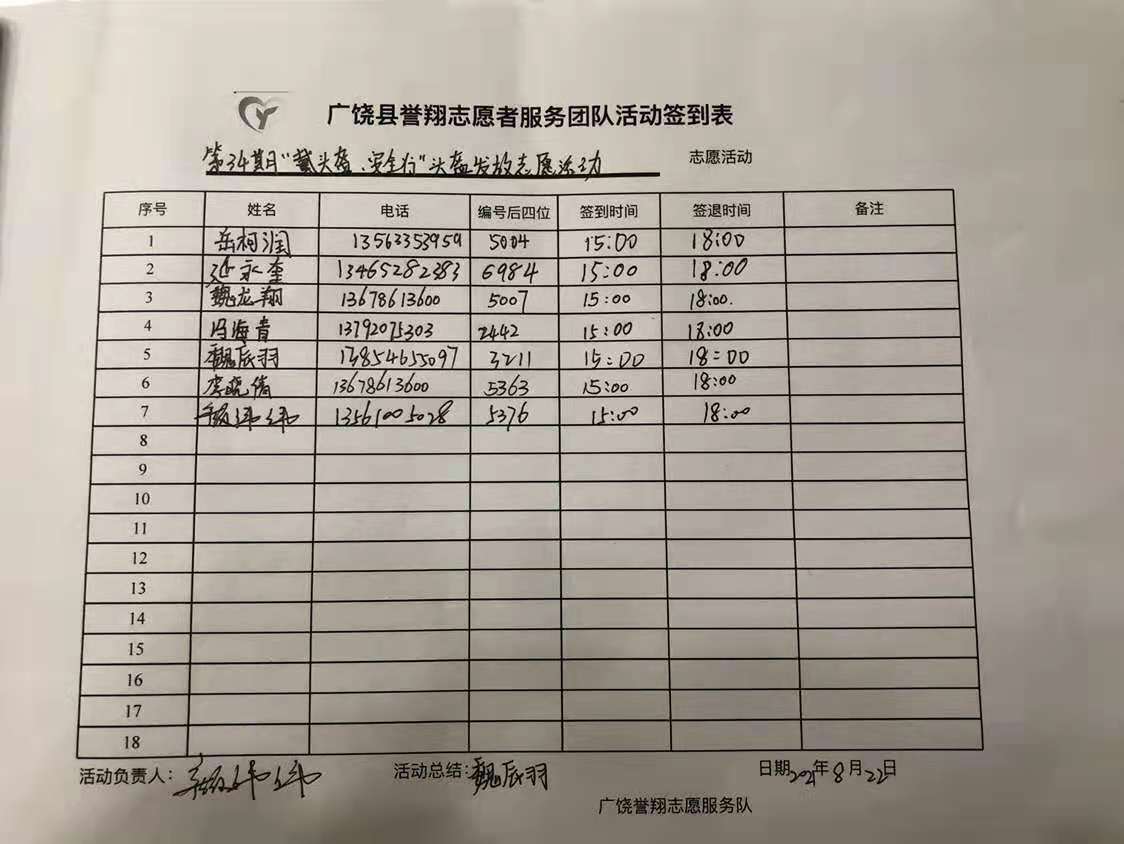 广饶县誉翔志愿者服务团队活动签到表
第34期"戴头盔、安全行"头盔发放志愿活动 志愿活动
序号 姓名 电话 编号后四位 签到时间 签退时间 备注
1 岳柯润 13563353959 5004 15:00 18:00
2 延永奎 13465282383 6984 15:00 18:00
3 魏龙翔 13678613600 5007 15:00 18:00.
4 冯海青 13792075303 2442 15:00 18:00
5 魏辰羽 15:00 18:00
6 李晓倩 13678613600 5363 15:00 18:00
7 13561005028 5376 15:00 18:00
8
9
10
11
12
13
14
15
16
17
18
活动负责人: 活动总结:魏辰羽 日期2021年8月22日
广饶誉翔志愿服务队